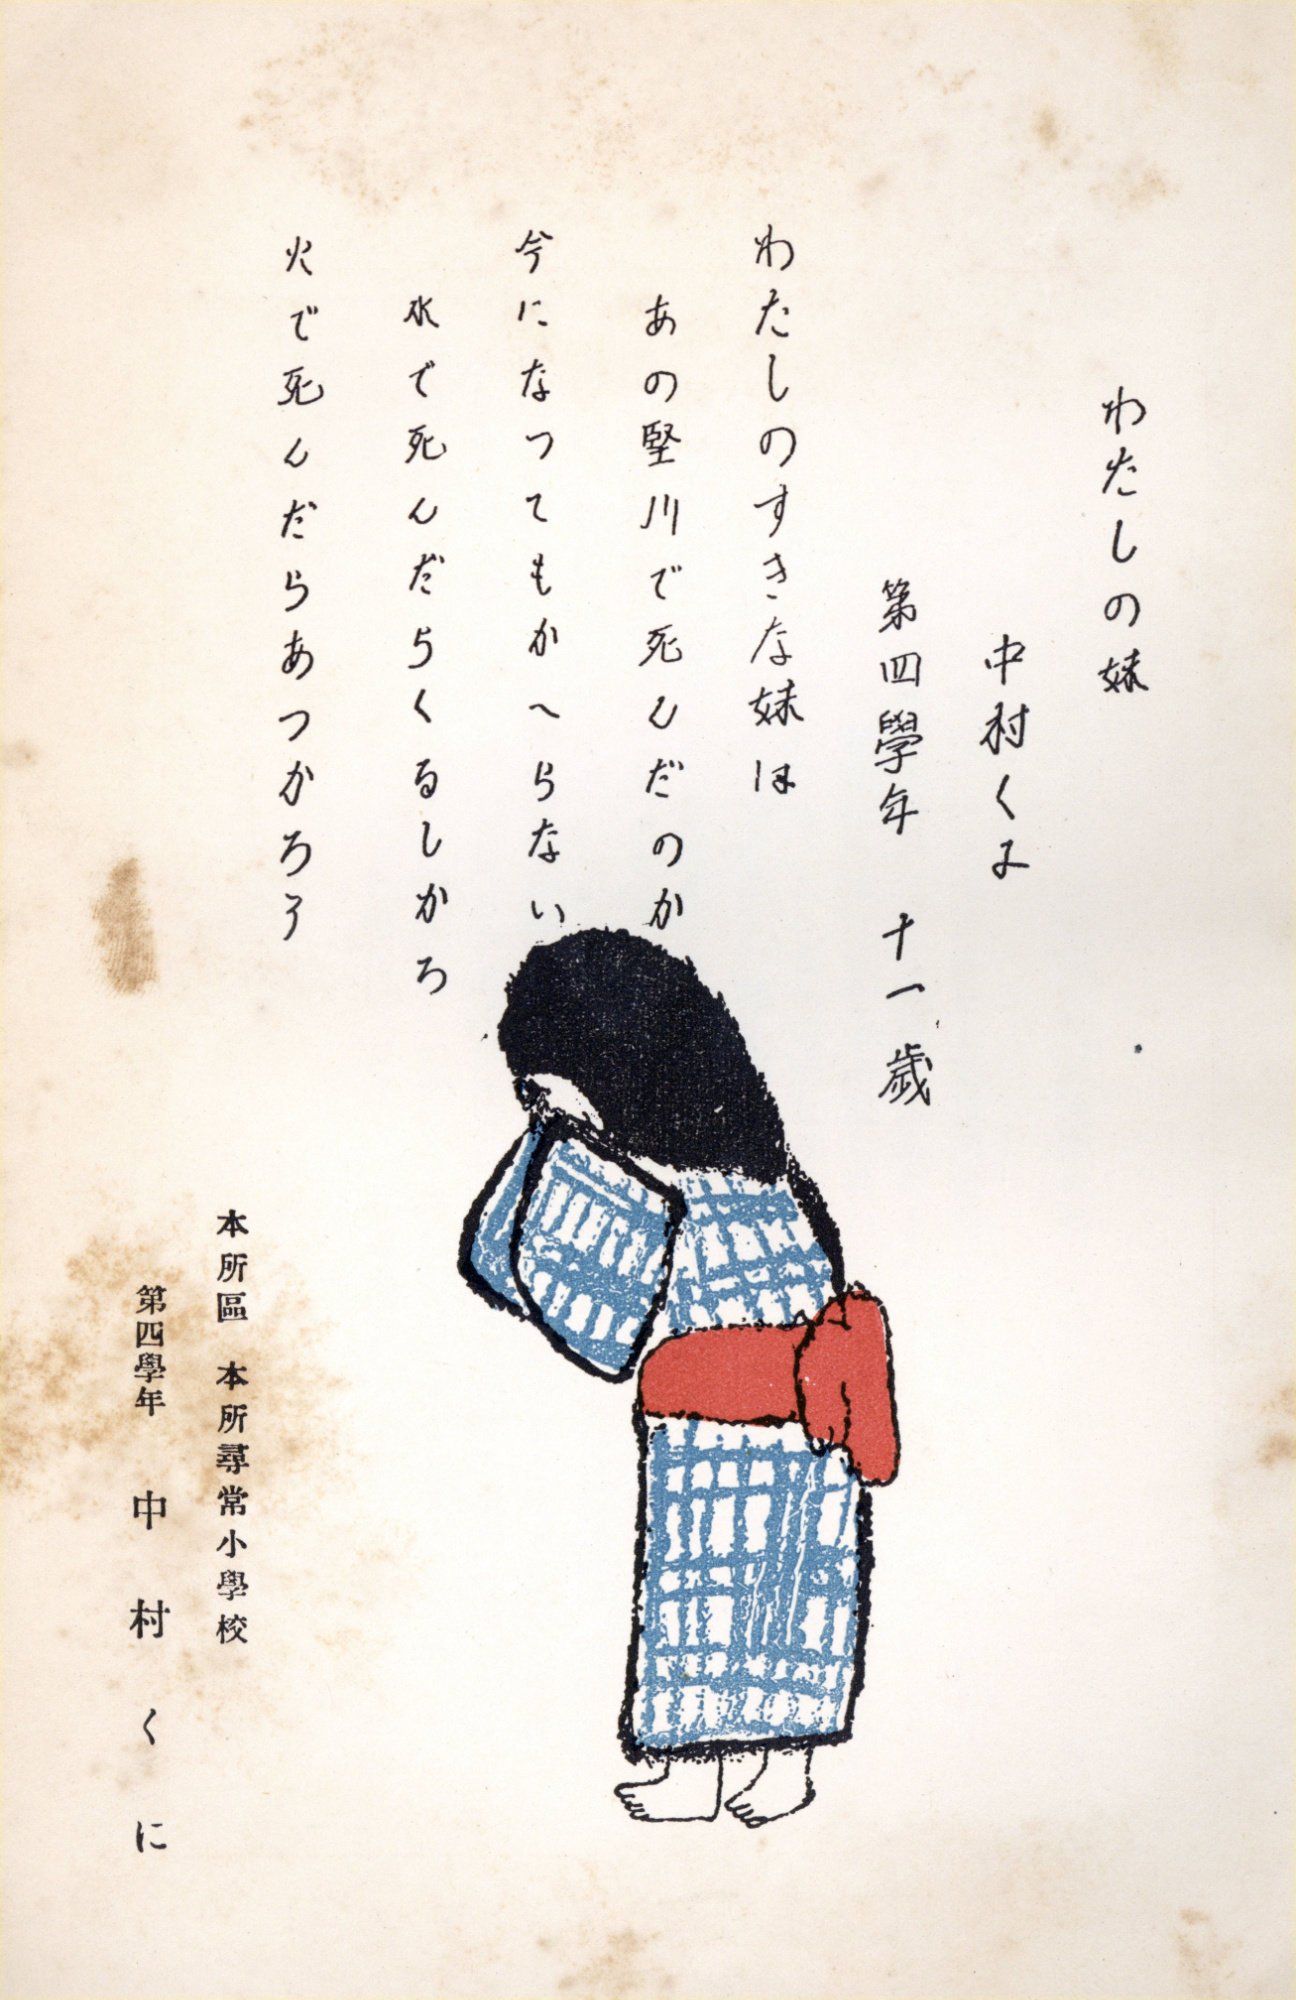 わたしの妹
中村くに
第四學年 十一歲
わたしのすきな妹は
あの堅川で死んだのか
今になつてもかへらない
水で死んだらくるしかろ
火で死んだらあつかろう
本所區 本所尋常小學校
第四學年 中村くに